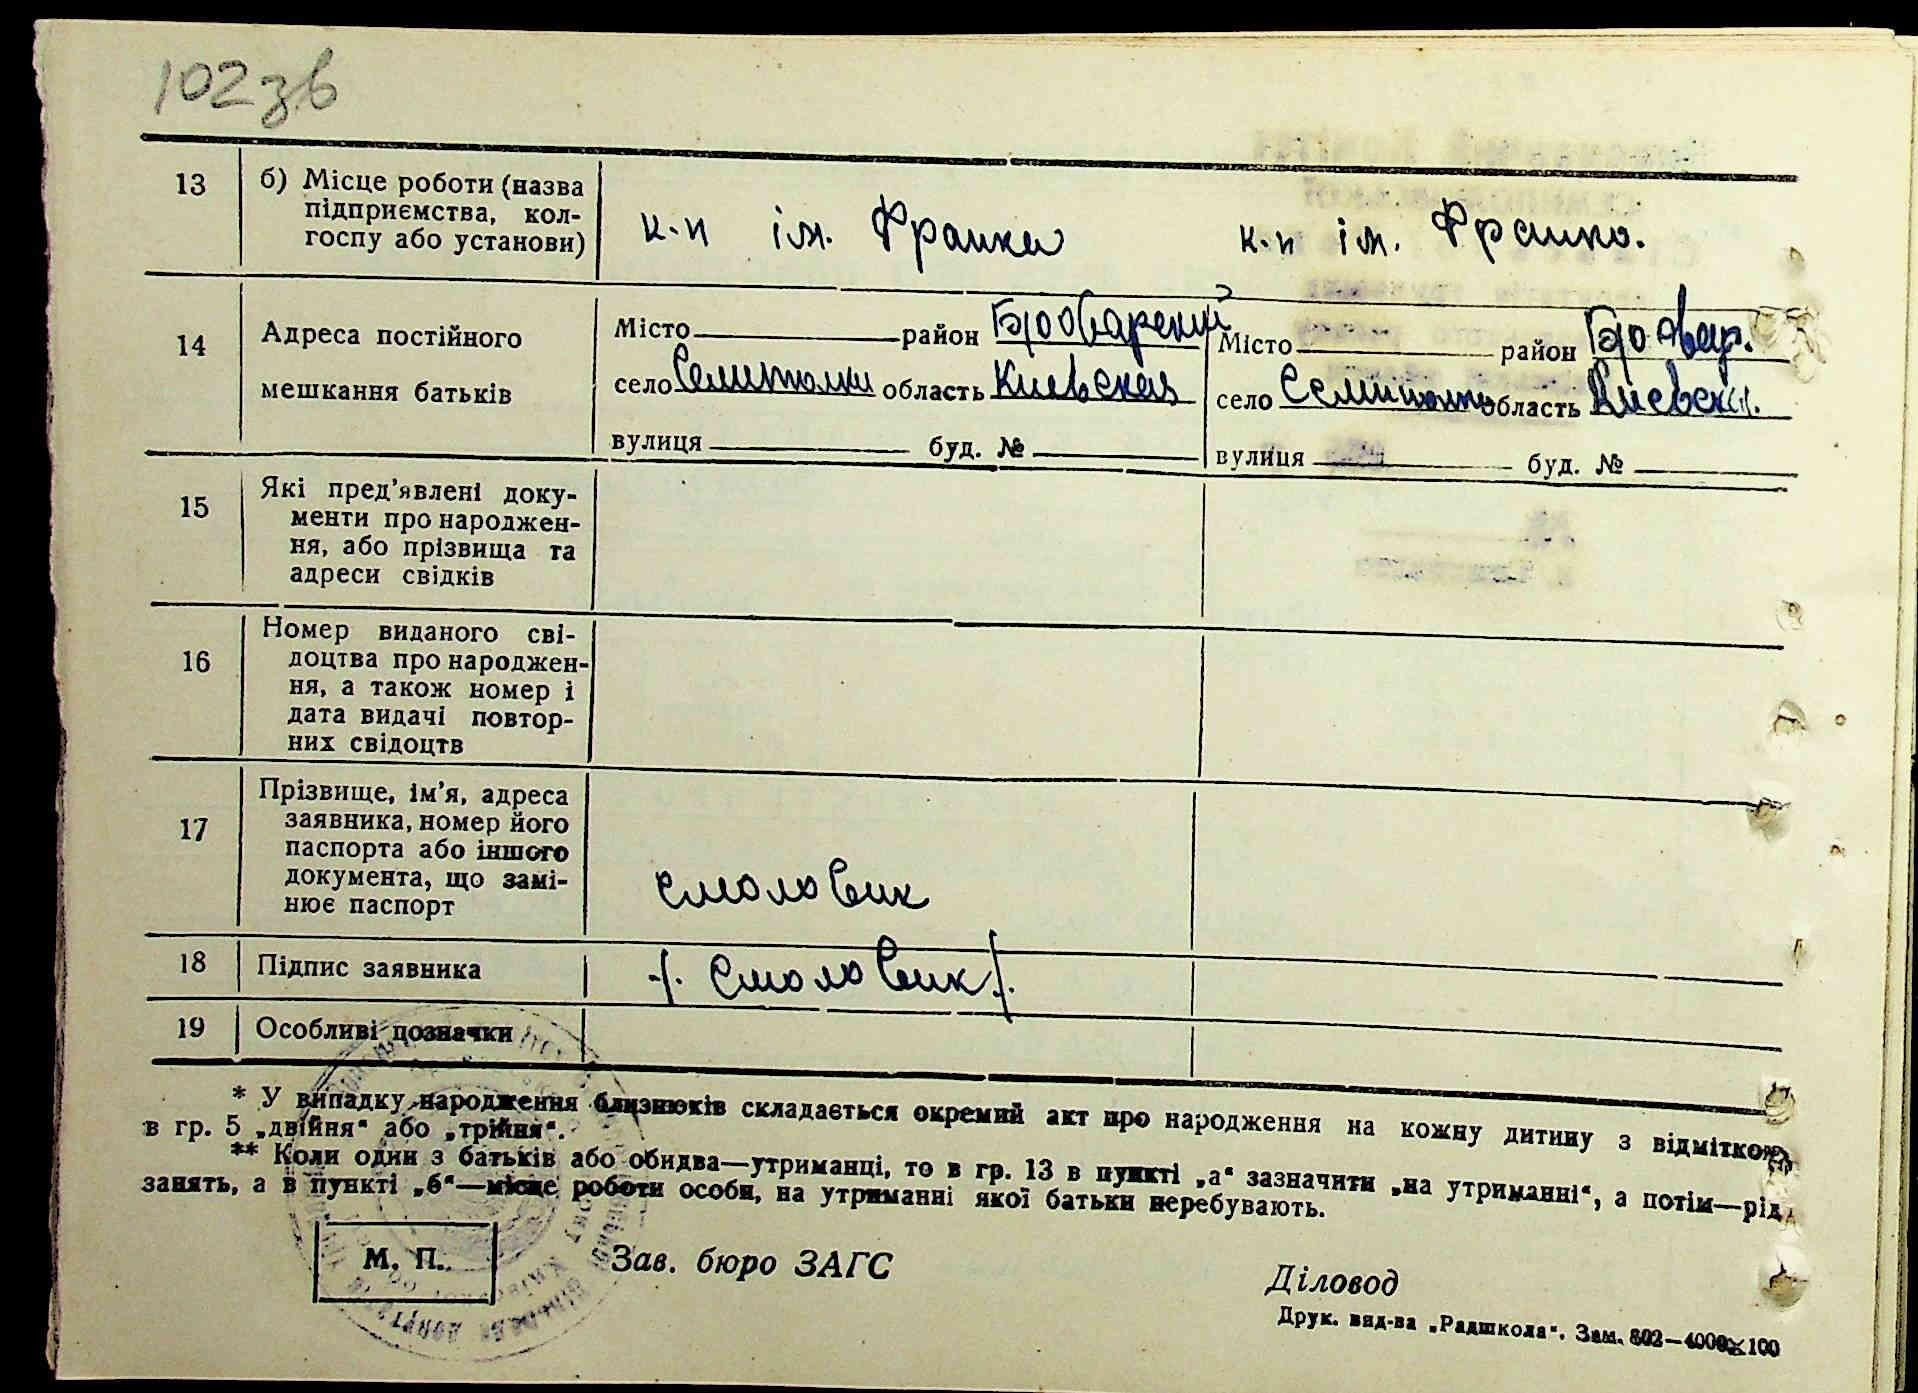 102 зв
13 б) Місце роботи (назва
підприємства, кол-
госпу або установи)
к-п ім. Франка к-п ім. Франко.
14 Адреса постійного
мешкання батьків
Місто район Броварский Місто район Бровар.
село Семиполки область Киевская село Семиполки область Киевск.
вулиця буд. № вулиця буд. №
15 Які пред'явлені доку-
менти про народжен-
ня, або прізвища та
адреси свідків
16 Номер виданого сві-
доцтва про народжен-
ня, а також номер і
дата видачі повтор-
них свідоцтв
17 Прізвище, ім'я, адреса
заявника, номер його
паспорта або іншого
документа, що замі-
нює паспорт
Смоловик
18 Підпис заявника /. Смоловик /.
19 Особливі позначки
* У випадку народження близнюків складається окремий акт про народження на кожну дитину з відміткою
в гр. 5 „двійня“ або „трійня“.
** Коли один з батьків або обидва—утриманці, то в гр. 13 в пункті „а“ зазначити „на утриманні“, а потім—рід
занять, а в пункті „б“—місце роботи особи, на утриманні якої батьки перебувають.
М. П. Зав. бюро ЗАГС Діловод
Друк. вид-ва „Радшкола“. Зам. 802—4000×100